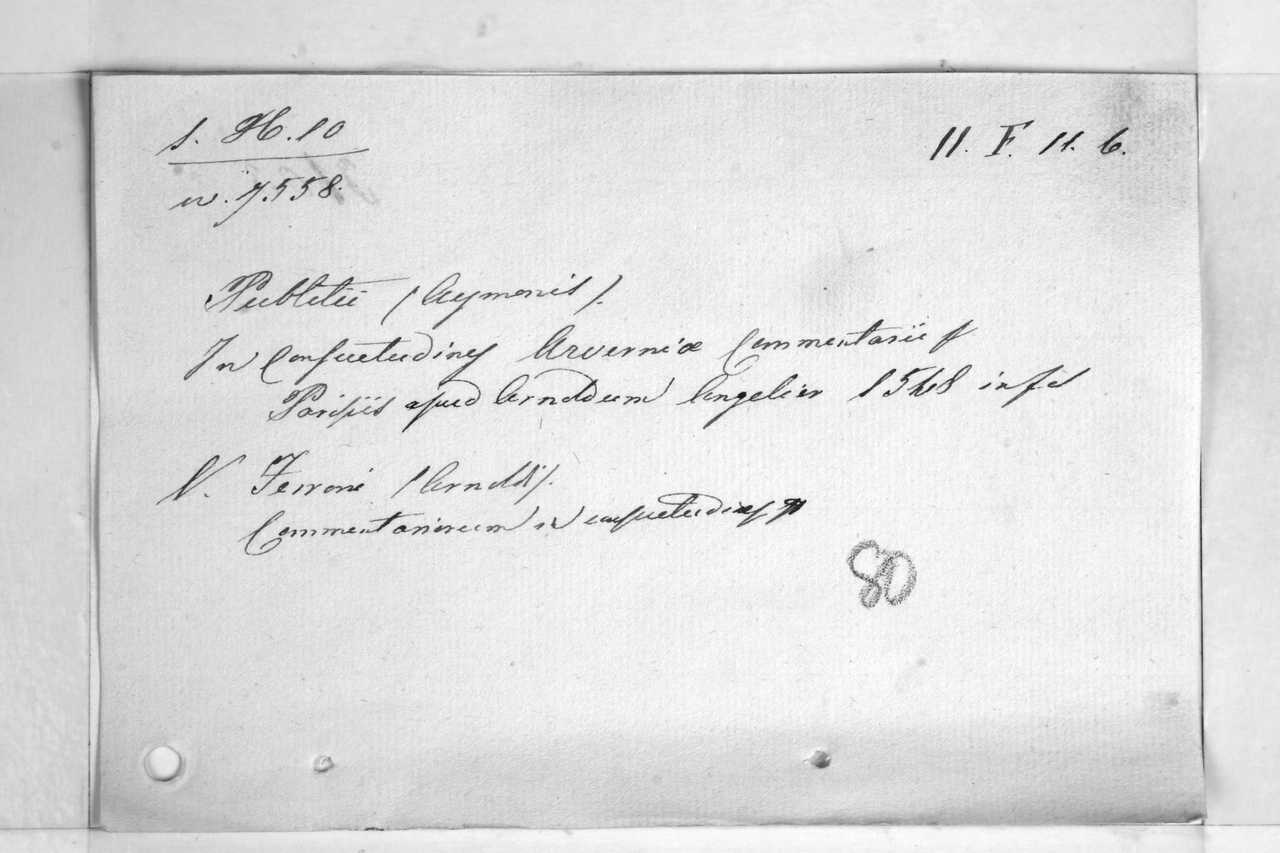 1. H. 10
11. F. 11. 6.
n. 7.558.
Publitii (Aymonis).
In Consuetudines Arverniæ Commentarii
Parisiis apud Arnoldum Angelier 1548 in fol
V. Ferroni (Arnoldi).
Commentariorum in consuetudines
80